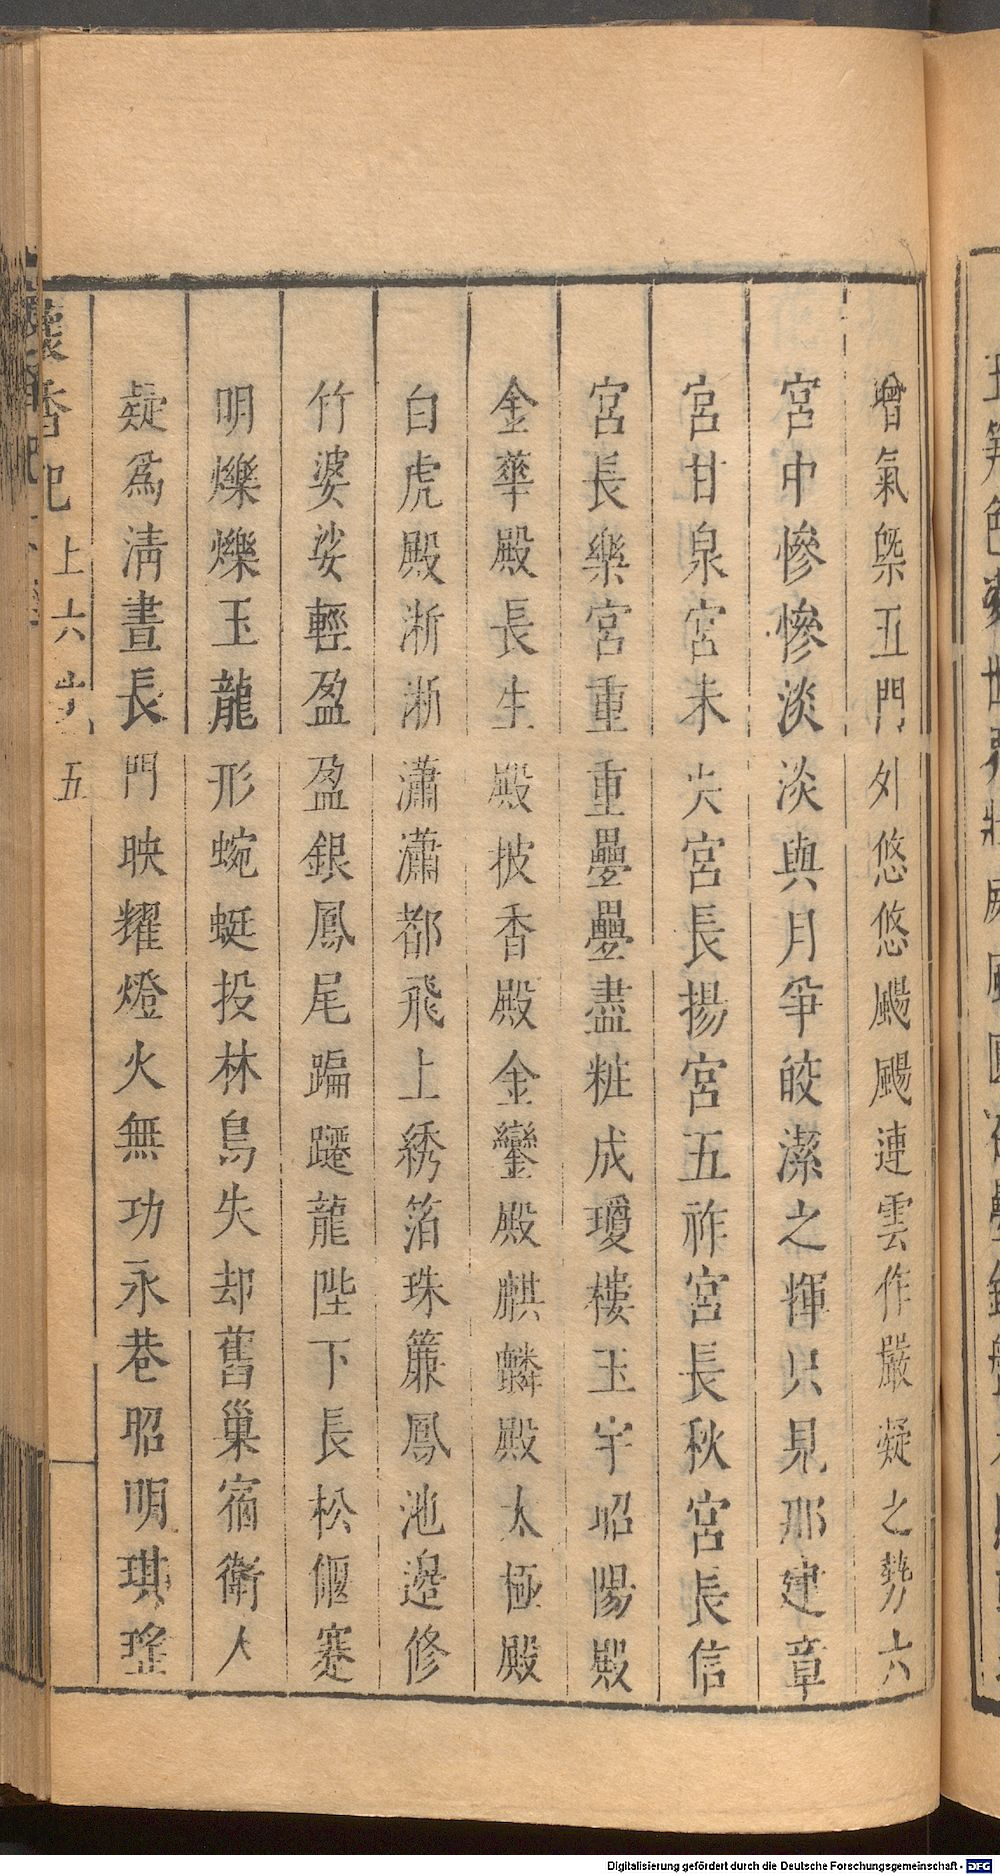 增氣槩五門外悠悠颺颺連雲作嚴凝之勢六
宮中慘慘淡淡與月爭皎潔之輝只見那建章
宮甘泉宮未央宮長揚宮五祚宮長秋宮長信
宮長樂宮重重疊疊盡粧成瓊樓玉宇昭陽殿
金華殿長生殿披香殿金鑾殿麒麟殿太極殿
白虎殿淅淅瀟瀟都飛上綉箔珠簾鳳池邉修
竹婆娑輕盈盈銀鳳尾蹁躚龍陛下長松偃蹇
明爍爍玉龍形蜿蜒投林鳥失却舊巢宿衛人
疑爲淸晝長門映耀燈火無功永巷昭明琪瑤
懷香記上六出五
Digitalisierung gefördert durch die Deutsche Forschungsgemeinschaft - DFG